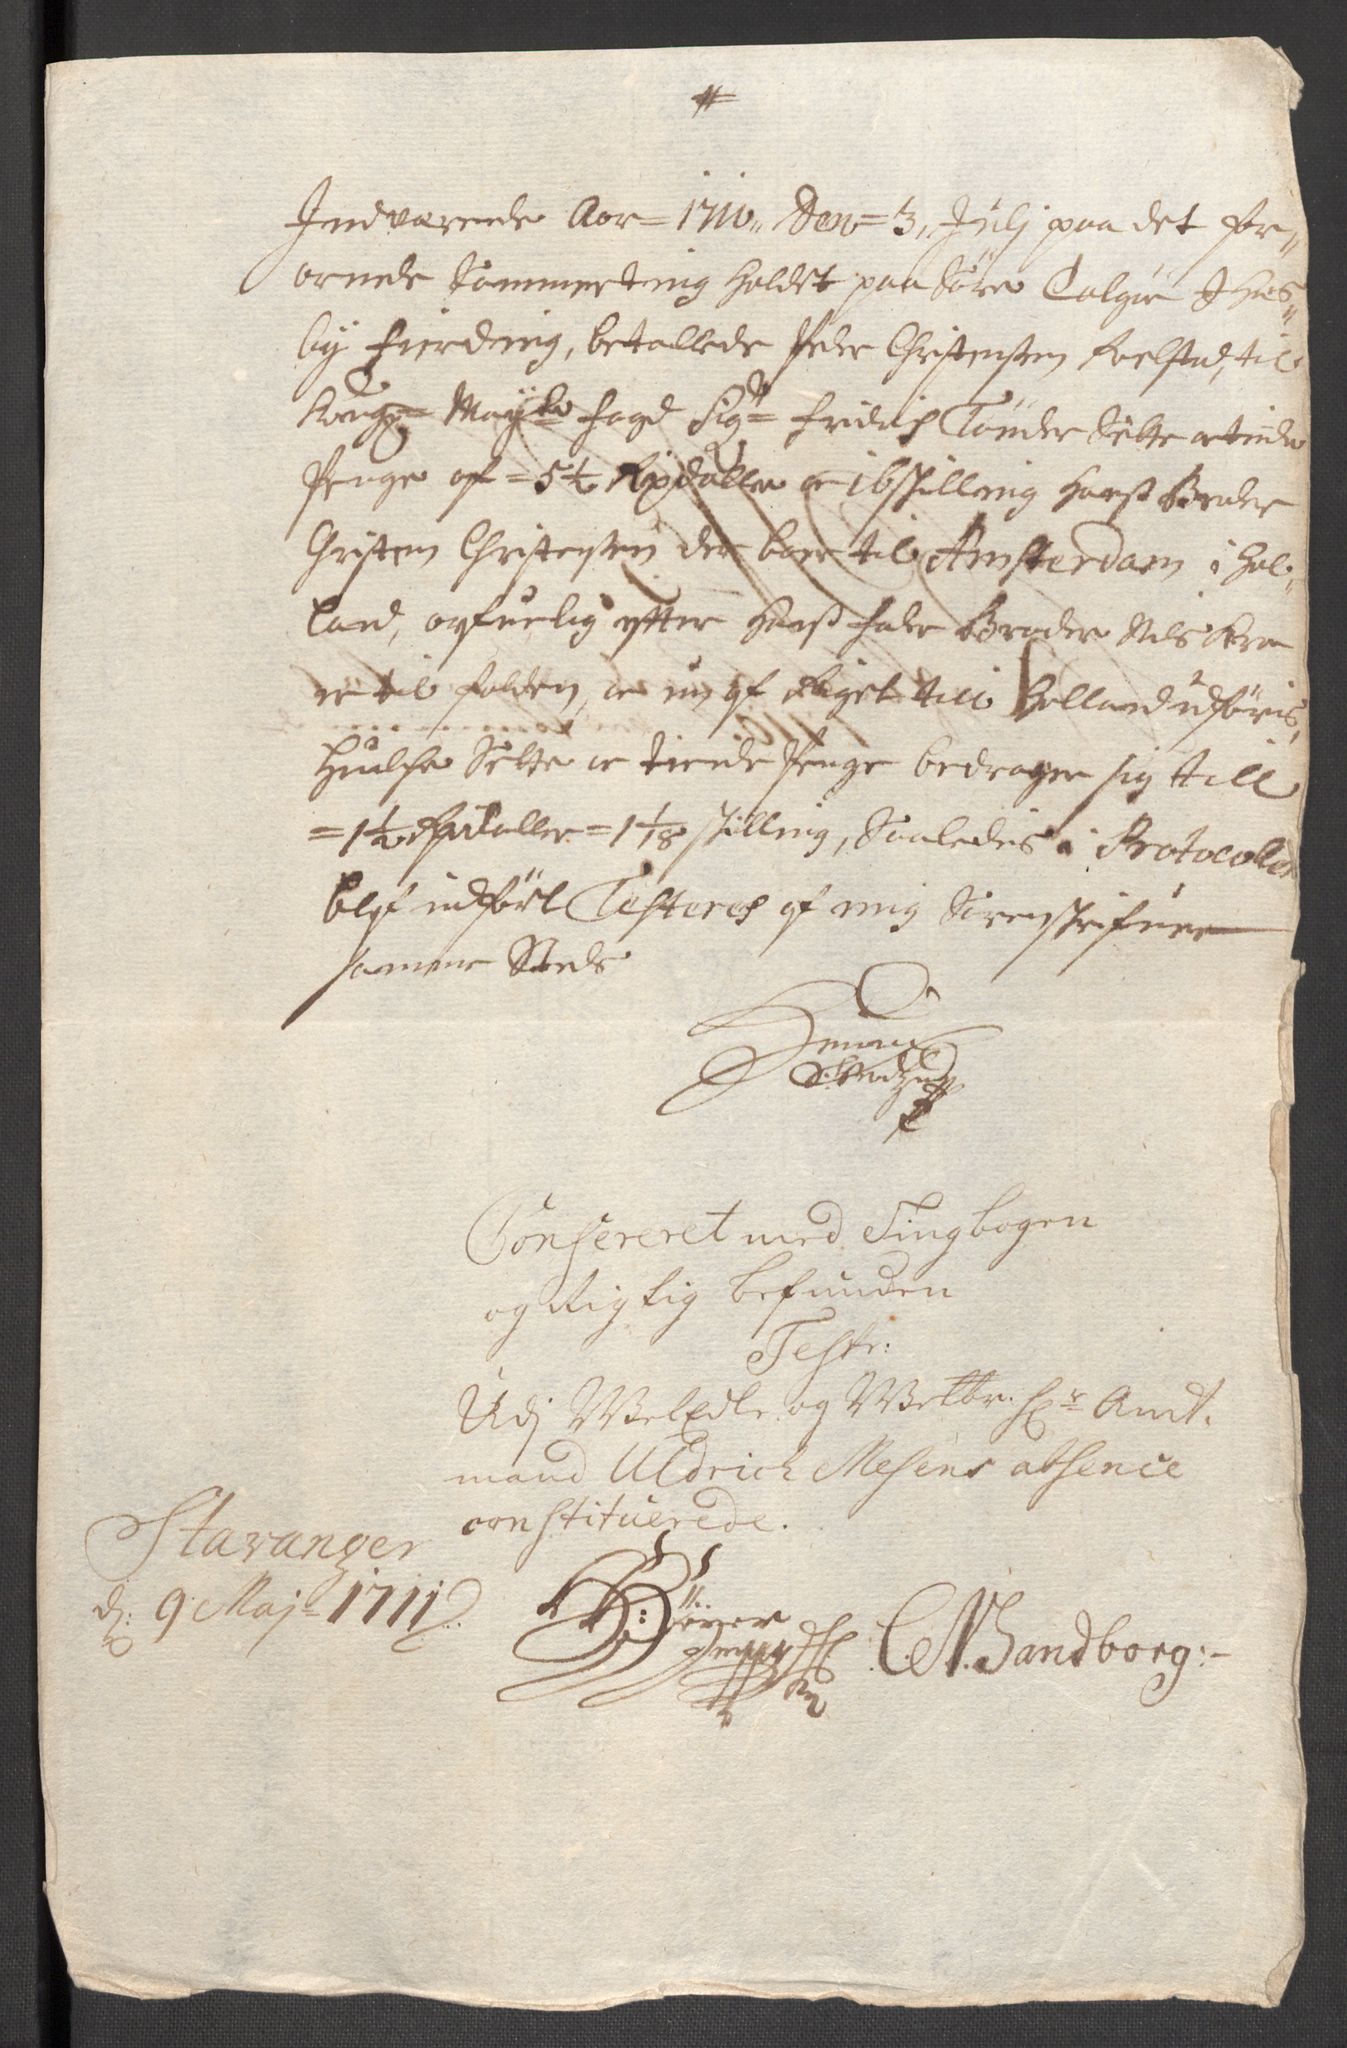 Indværende Aar = 1710,, Den = 3, Julj paa det for„
ornede Sommerting holdet paa Søre Talgie I Hes„
by fierding, betallede Peder Christensen Koelstad, til
Kong: Mayts fogd Sigr Fridrich Tønder Siette og tiende
Penge af = 5½ Rixdaller og 16 skilling hans Broder
Christen Christensen der boer til Amsterdam i Hol„
land, arfuelig efter hans fader Broder Nils
er til falden, og nu af Riget till Holland udføris,
Huilke Siette og tiende Penge bedrager sig till
= 1½ Rixdaller = 1⅛ skilling, Saaledis i Protocollen
blef indført Testeres af mig Sorenskrifuer
samme Steds
Confereret med Tingbogen
og Rigtig befunden
Teste:
Udj WelEdle og Welbr. Hr Amt„
mand Uldrich Mesens absence
constituerede.
Stavanger
d: 9 Maj 1711
C. N. Sandborg:-